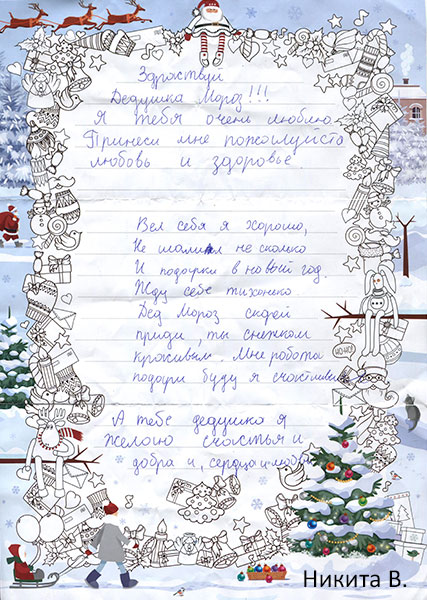 Здраствуй
Дедушка Мороз!!!
Я тебя очень люблю.
Принеси мне пожалуйсто
любовь и здоровье.
Вел себя я хорошо,
Не шалил не сколько
И подарки в новый год.
Жду себе тихонько
Дед Мороз скорей
приди, ты снежком
красивым. Мне робота
подари буду я счастливым
А тебе дедушка я
желаю счастья и
добра и, сердца и любви
HO-HO!
Никита В.